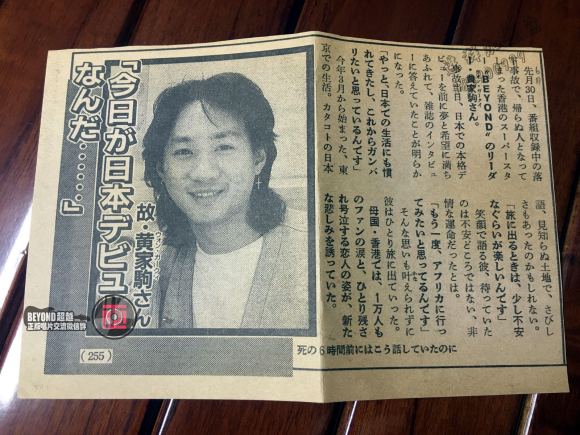 「今日が日本デビュー
なんだ……」
故・黄家駒さん
ウォン・カークイ
先月30日、番組収録中の落
事故で、帰らぬ人となって
った香港のスーパースタ
"BEYOND"のリーダ
ー・黄家駒さん。
事故当日、日本での本格デ
ビューを前に夢と希望に満ち
あふれて、雑誌のインタビュ
ーに答えていたことが明らか
になった。
「やっと、日本での生活にも慣
れてきたし、これからガンバ
リたいと思っているんです」
今年3月から始まった、東
京での生活。カタコトの日本
語、見知らぬ土地で、さびし
さもあったのかもしれない。
「旅に出るときは、少し不安
なぐらいが楽しいんです」
笑顔で語る彼、待っていた
のは不安どころではない、非
情な運命だったとは。
「もう一度、アフリカに行っ
てみたいと思ってるんです」
そんな思いも叶えられずに
彼はひとり旅に出ていった。
母国・香港では、1万人も
のファンの涙と、ひとり残さ
れ号泣する恋人の姿が、新た
な悲しみを誘っていた。
死の6時間前にはこう話していたのに
(255)
BEYOND超越
正版唱片交流微信群